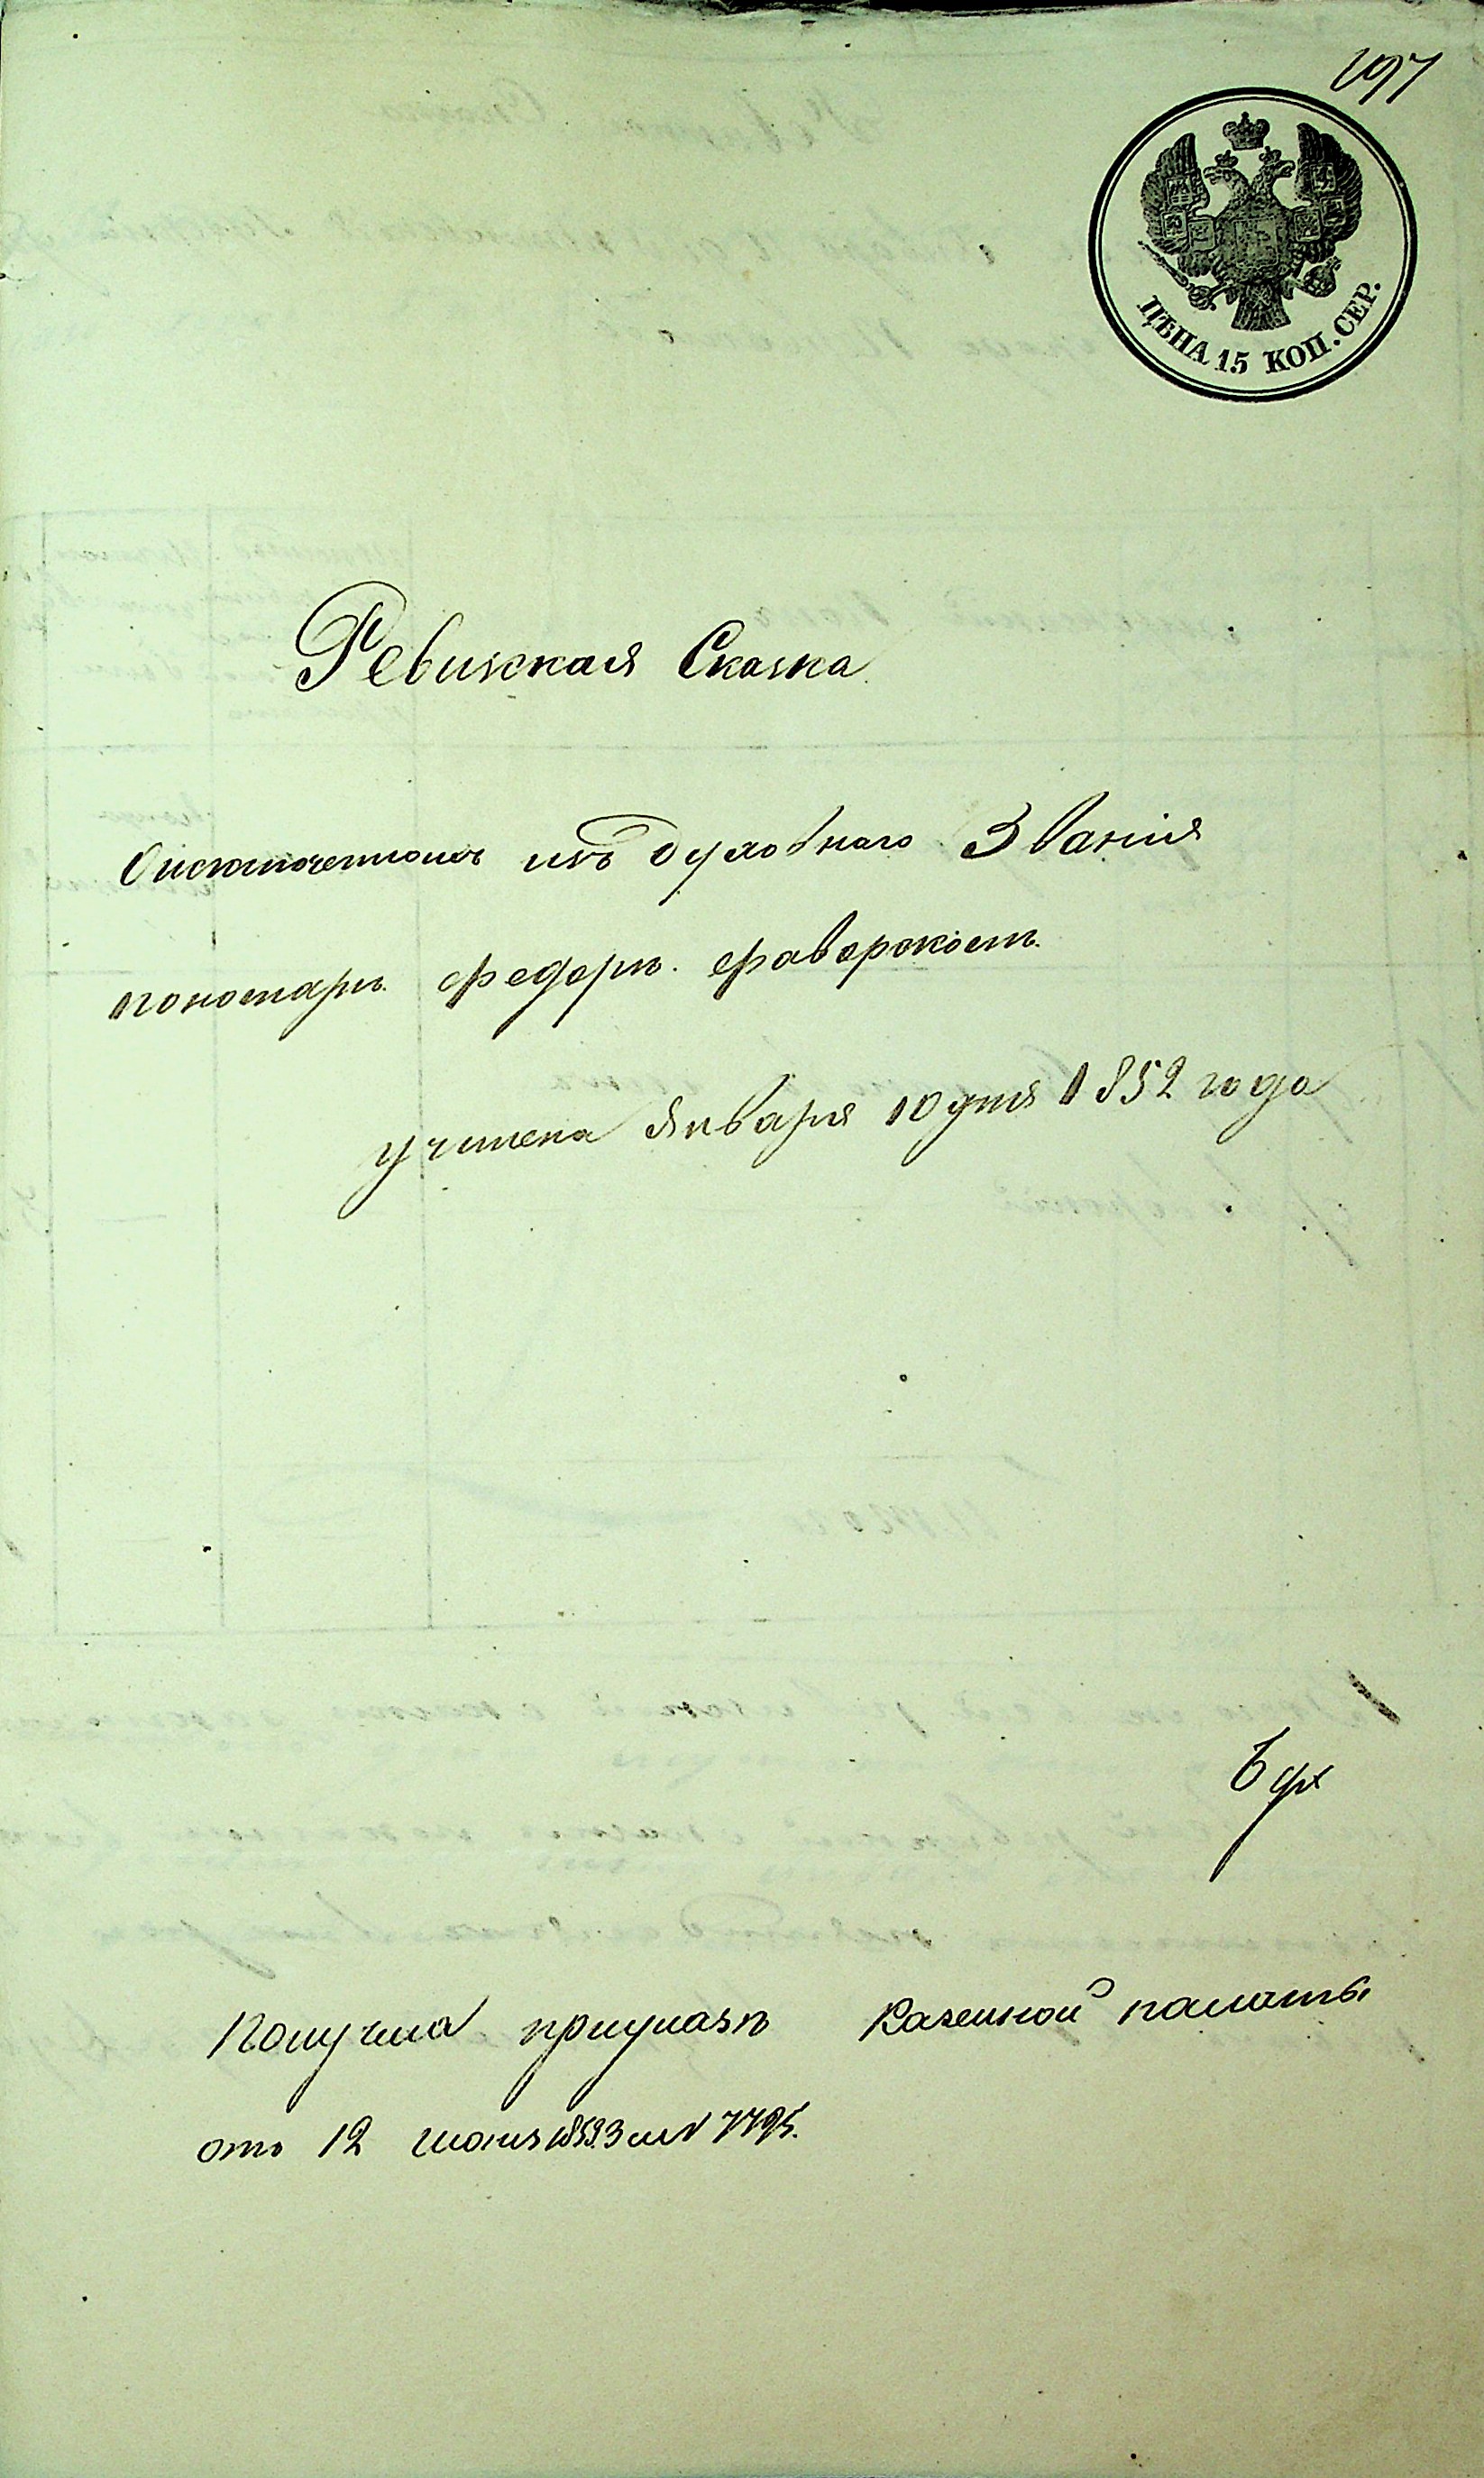 ЦѢНА 15 КОП. СЕР.
Ревизская Сказка
О исключенномъ изъ духовнаго Званія
пономарѣ Федорѣ Фаворскомъ
учинена Января 10 дня 1852 года
Получена при указѣ Казенной палаты
отъ 12 июня 1853 №